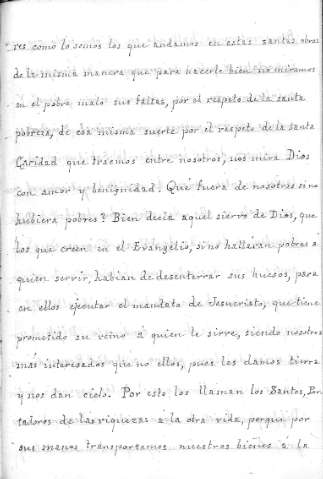 res como lo somos los que andamos en estas santas obras
de la misma manera que para hacerle bien no miramos
en el pobre malo sus faltas, por el respeto de la santa
pobreza, de esa misma suerte por el respeto de la santa
Caridad que traemos entre nosotros, nos mira Dios
con amor y benignidad. Que fuera de nosotros si no
hubiera pobres? Bien decia aquel siervo de Dios, que
los que creen en el Evangelio, si no hallaran pobres a
quien servir, habian de desenterrar sus huesos, para
en ellos ejecutar el mandato de Jesucristo, que tiene
prometido su reino á quien le sirve, siendo nosotros
mas interesados que no ellos, pues les damos tierra
y nos dan cielo. Por esto los llaman los Santos, Por
tadores de las riquezas á la otra vida, porque por
sus manos transportamos nuestros bienes á la